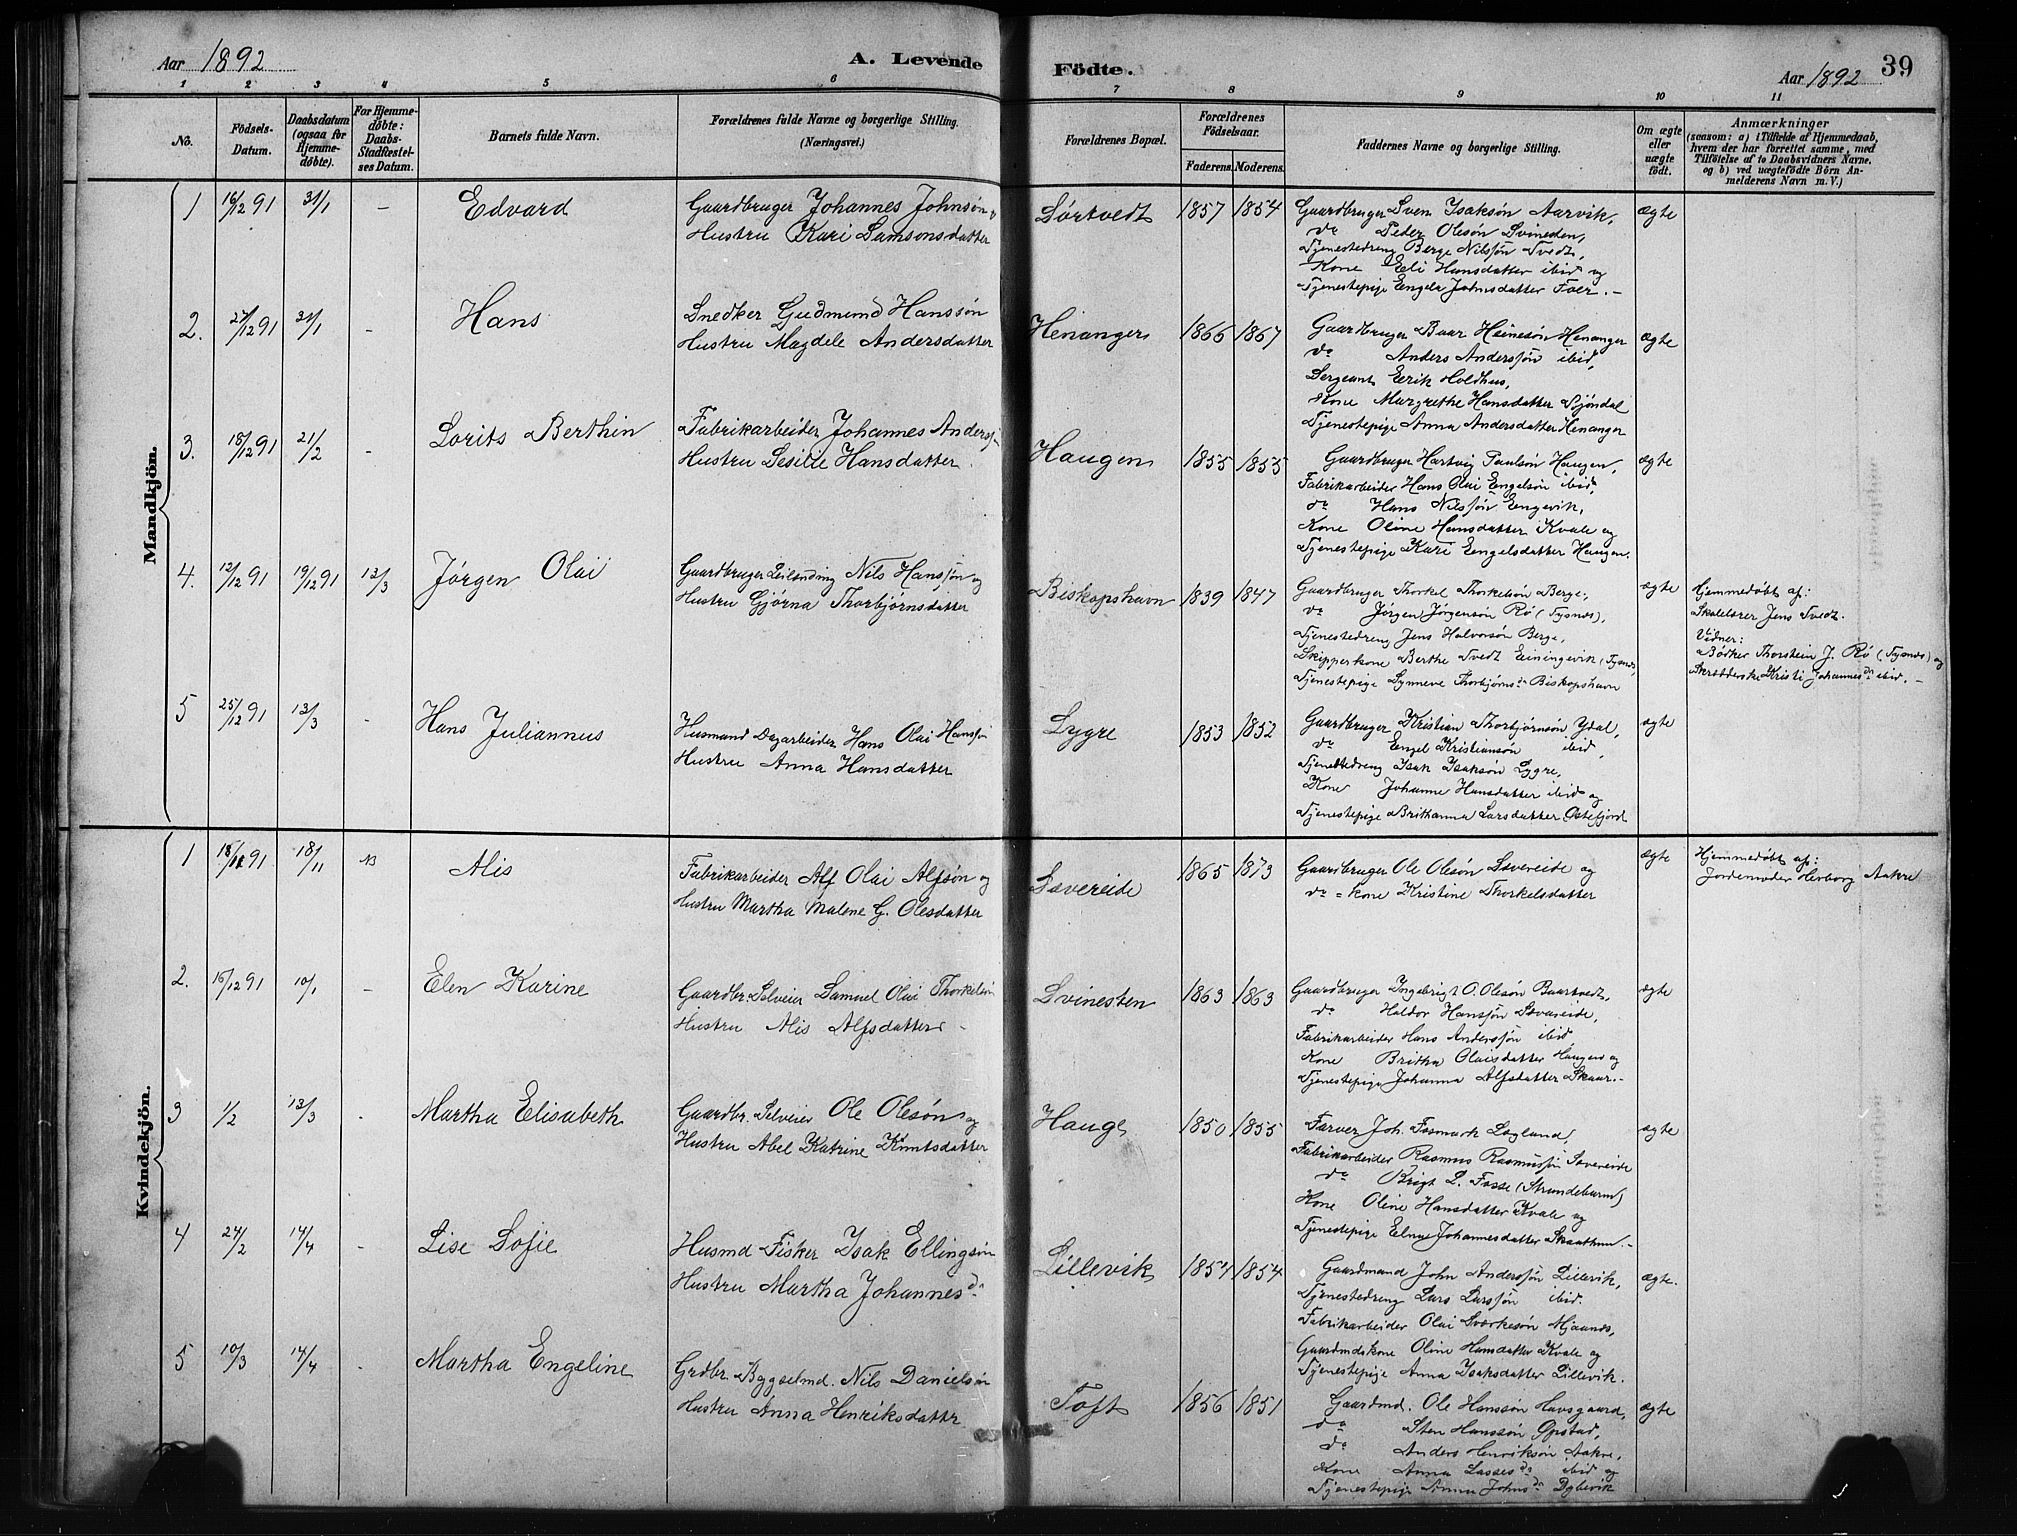 Aar 1892
A. Levende
Födte.
Aar 1892
39
1 2 3 4 5 6 7 8 9 10 11
No.
Födsels-
Datum.
Daabsdatum
(ogsaa for
Hjemme-
döbte).
For Hjemme-
döbte:
Daabs-
Stadfæstel-
ses Datum.
Barnets fulde Navn.
Forældrenes fulde Navne og borgerlige Stilling.
(Næringsvei.)
Forældrenes Bopæl.
Forældrenes
Födselsaar.
Faderens. Moderens.
Faddernes Navne og borgerlige Stilling.
Om ægte
eller
uægte
födt.
Anmærkninger
(saasom: a) i Tilfælde af Hjemmedaab,
hvem der har forrettet samme, med
Tilföielse af to Daabsvidners Navne,
og b) ved uægtefödte Börn An-
melderens Navn m. V.)
Mandkjön.
1 16/12 91 31/1 - Edvard
Gaardbruger Johannes Johnsøn
Hustru Kari Samsonsdatter
Sørtvedt 1857 1854
Gaardbruger Sven Isaksøn Aarvik,
do Peder Olesøn Svinesten,
Tjenestedreng Berge Nilssøn Tvedt,
Kone Eli Hansdatter ibid og
Tjenestepige Engela Johnsdatter Foer. -
ægte
2. 27/12 91 31/1 - Hans
Snedker Gudmund Hanssøn
Hustru Magdele Andersdatter
Henanger 1866 1867
Gaardbruger Baar Heinesøn Henanger
do Anders Anderssøn ibid,
Sergeant Eerik Holdhus,
Kone Margrethe Hansdatter Sjöndal
Tjenestepige Anna Andersdatter Henanger
ægte
3. 18/12 91 21/2 - Lorits Berthin
Fabrikarbeider Johannes Anderss.
Hustru Sesilie Hansdatter
Haugen 1855 1855
Gaardbruger Hartvig Paulsøn Haugen,
Fabrikarbeider Hans Olai Engelsøn ibid,
do Hans Nilssøn Engevik,
Kone Oline Hansdatter Kvale og
Tjenestepige Kari Engelsdatter Haugen.
ægte
4. 12/12 91 19/12 91 13/3 Jørgen Olai
Gaardbruger Leilending Nils Hanssøn og
Hustru Gjørna Thorbjørnsdatter
Biskopshavn 1839 1847
Gaardbruger Thorkel Thorkelsøn Berge,
do Jørgen Jørgensøn Rø (Tysnes),
Tjenestedreng Jens Halvorsøn Berge,
Skipperkone Berthe Tvedt Eeiningevik (Tysnes)
Tjenestepige Synneve Thorbjørnsdr Biskopshavn
ægte
Hjemmedøbt af:
Skolelærer Jens Tvedt.
Vidner:
Bødker Thorstein J. Rø (Tysnes) og
Skrædderske Kristi Johannesdr ibid. -
5 25/12 91 13/3 - Hans Juliannus
Husmand Dagarbeider Hans Olai Hanssøn
Hustru Anna Hansdatter
Lygre 1853 1852
Gaardbruger Kristian Thorbjørnsøn Ydal,
do Engel Kristiansøn ibid,
Tjenestedreng Isak Isaksøn Lygre,
Kone Johanne Hansdatter ibid og
Tjenestepige Brithanna Larsdatter Østefjord
ægte
Kvindekjön.
1 18/11 91 18/11 NB Alis
Fabrikarbeider Alf Olai Alfsøn og
Hustru Martha Malene G. Olesdatter
Sævereide 1865 1873
Gaardbruger Ole Olesøn Sævereide og
do - kone Kristine Thorkelsdatter
ægte
Hjemmedøbt af:
Jordemoder Herborg Aakre
2. 16/12 91 10/1 - Elen Karine
Gaardbr. Selveier Samuel Olai Thorkelsøn
Hustru Alis Alfsdatter -
Svinesten 1863 1863
Gaardbruger Ingebrigt O. Olesøn Baartvedt,
do Haldor Hanssøn Sævareide,
Fabrikarbeider Hans Anderssøn ibid,
Kone Britha Olaisdatter Haugen og
Tjenestepige Johanna Alfsdatter Skaar. -
ægte
3 1/2 13/3 - Martha Elisabeth
Gaardbr. Selveier Ole Olesøn og
Hustru Abel Katrine Knutsdatter
Hauge 1850 1855
Farver Joh. Fasmark Sagland,
Fabrikarbeider Rasmus Rasmussøn Sævereide
do Brigt L. Fosse (Strandebarm)
Kone Oline Hansdatter Kvale og
Tjenestepige Elnes Johannesdatter Skaathun. -
ægte
4 24/2 14/4 - Lise Sofie
Husmd Fisker Isak Ellingsøn
Hustru Martha Johannesdr
Lillevik 1854 1854
Gaardmand John Anderssøn Lillevik,
Tjenestedreng Lars Larssøn ibid.
Fabrikarbeider Olai Sværkesøn Mjaanes,
Gaardmdskone Oline Hansdatter Kvale og
Tjenestepige Anna Isaksdatter Lillevik.
ægte.
5 10/3 14/4 - Martha Engeline
Grdbr Bygselmd. Nils Danielsøn
Hustru Anna Henriksdattr
Toft 1856 1851
Gaardmd. Ole Hanssøn Havsgaard,
do Sten Hanssøn Opstad,
do Anders Henriksøn Aakre,
Kone Anna Lassesdr ibid og
Tjenestepige Anna Johnsdr Dybevik
ægte